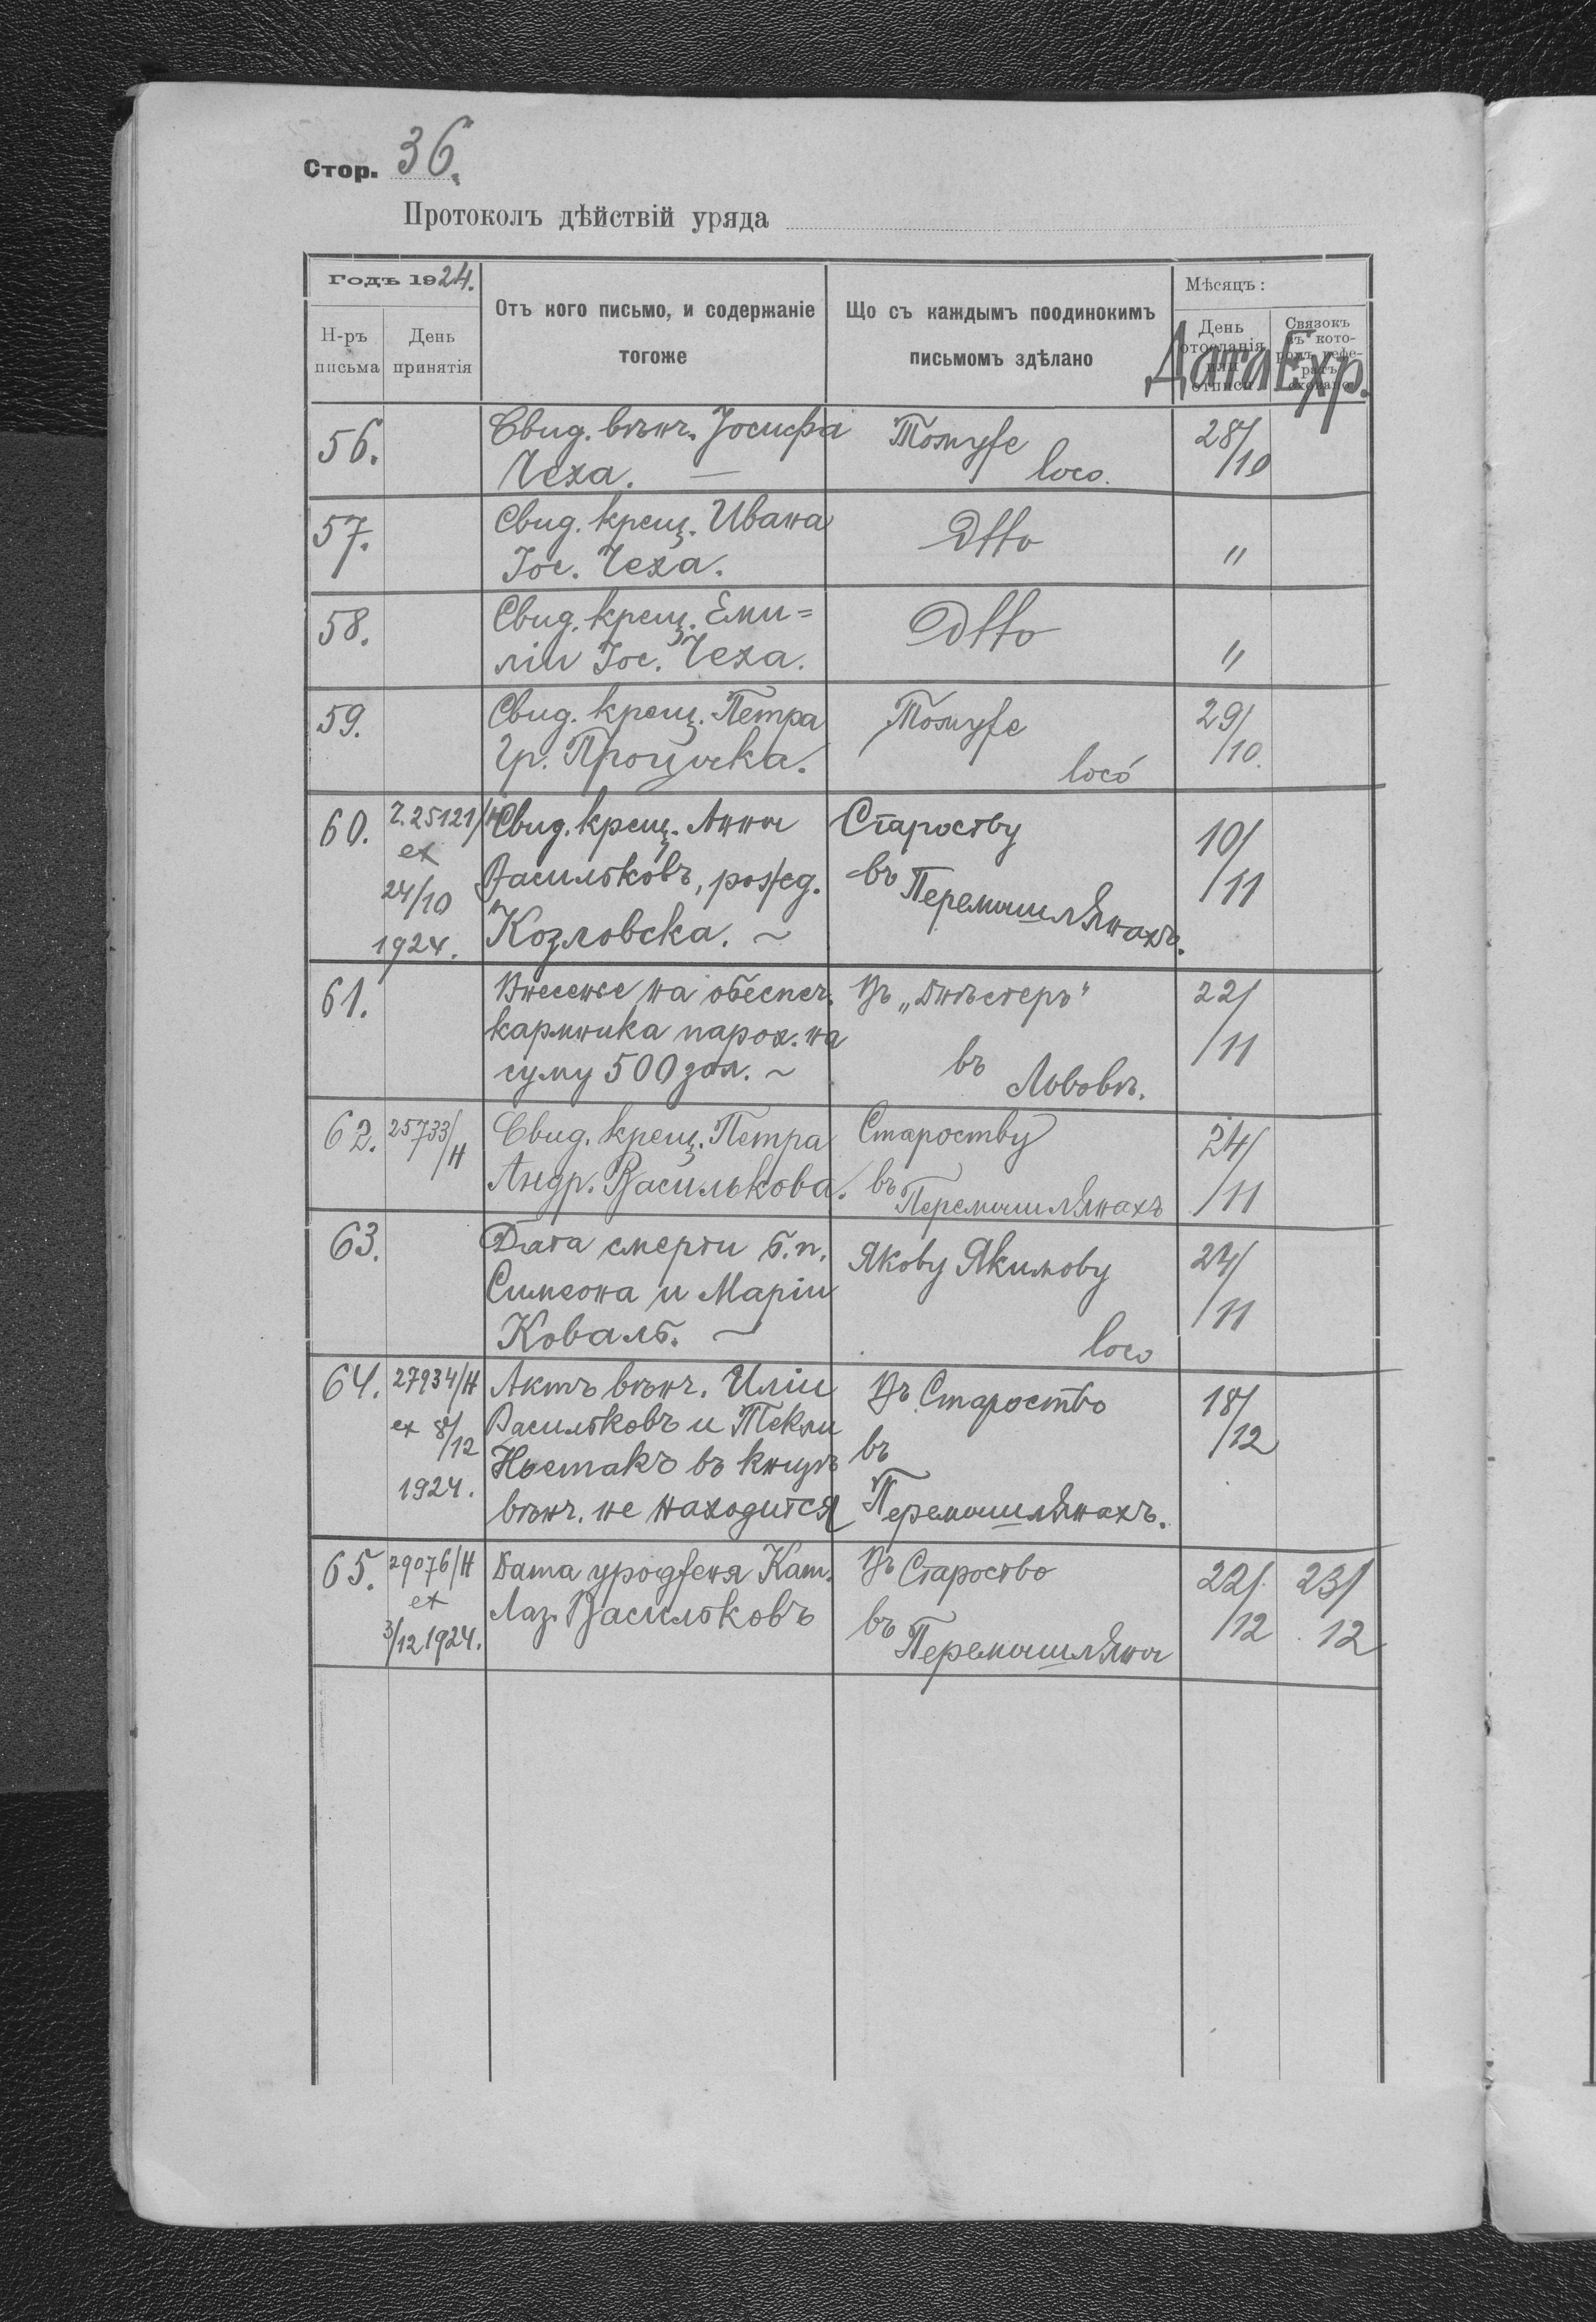 Стор. 36.
Протоколъ дѣйствій уряда
Годъ 1924.
Н-ръ письма
День принятія
Отъ кого письмо, и содержаніе
тогоже
Що съ каждымъ поодинокимъ
письмомъ здѣлано
Мѣсяцъ:
День
отосланія
или
отписи
Связокъ
въ кото-
ромъ рефе-
ратъ
сховано
Дата Exp.
56. Свид. вѣнч. Іосифа Томуже 28/
Чеха. — loco. /10
57. Свид. крещ. Ивана Dtto "
Іос. Чеха.
58. Свид. крещ. Еми= Dtto "
ліи Іос. Чеха.
59. Свид. крещ. Петра Томуже 29/
Гр. Процыка. loco /10.
60. Ч. 25121/H Свид. крещ. Анны Староству 10/
ex
24/10 Васильковъ, рожд. въ Перемышлянахъ. /11
1924. Козловска. ~
61. Внесенье на обеспеч. Въ „Днѣстеръ" 22/
кармника парох. на /11
суму 500 зол. ~ въ Львовѣ.
62. 25733/H Свид. крещ. Петра Староству 24/
Андр. Василькова. въ Перемышлянахъ /11
63. Дата смерти б. п. Якову Якимову 24/
Симеона и Маріи /11
Коваль. ~ loco
64. 27934/H Актъ вѣнч. Иліи Въ Староство 18/
ex 8/12 Васильковъ и Текли въ /12
1924. Ностакъ въ книзѣ
вѣнч. не находится Перемышлянахъ.
65. 29076/H Дата уродженя Кат. Въ Староство 22/ 23/
ex
3/12 1924. Лаз. Васильковъ въ Перемышляны /12 12